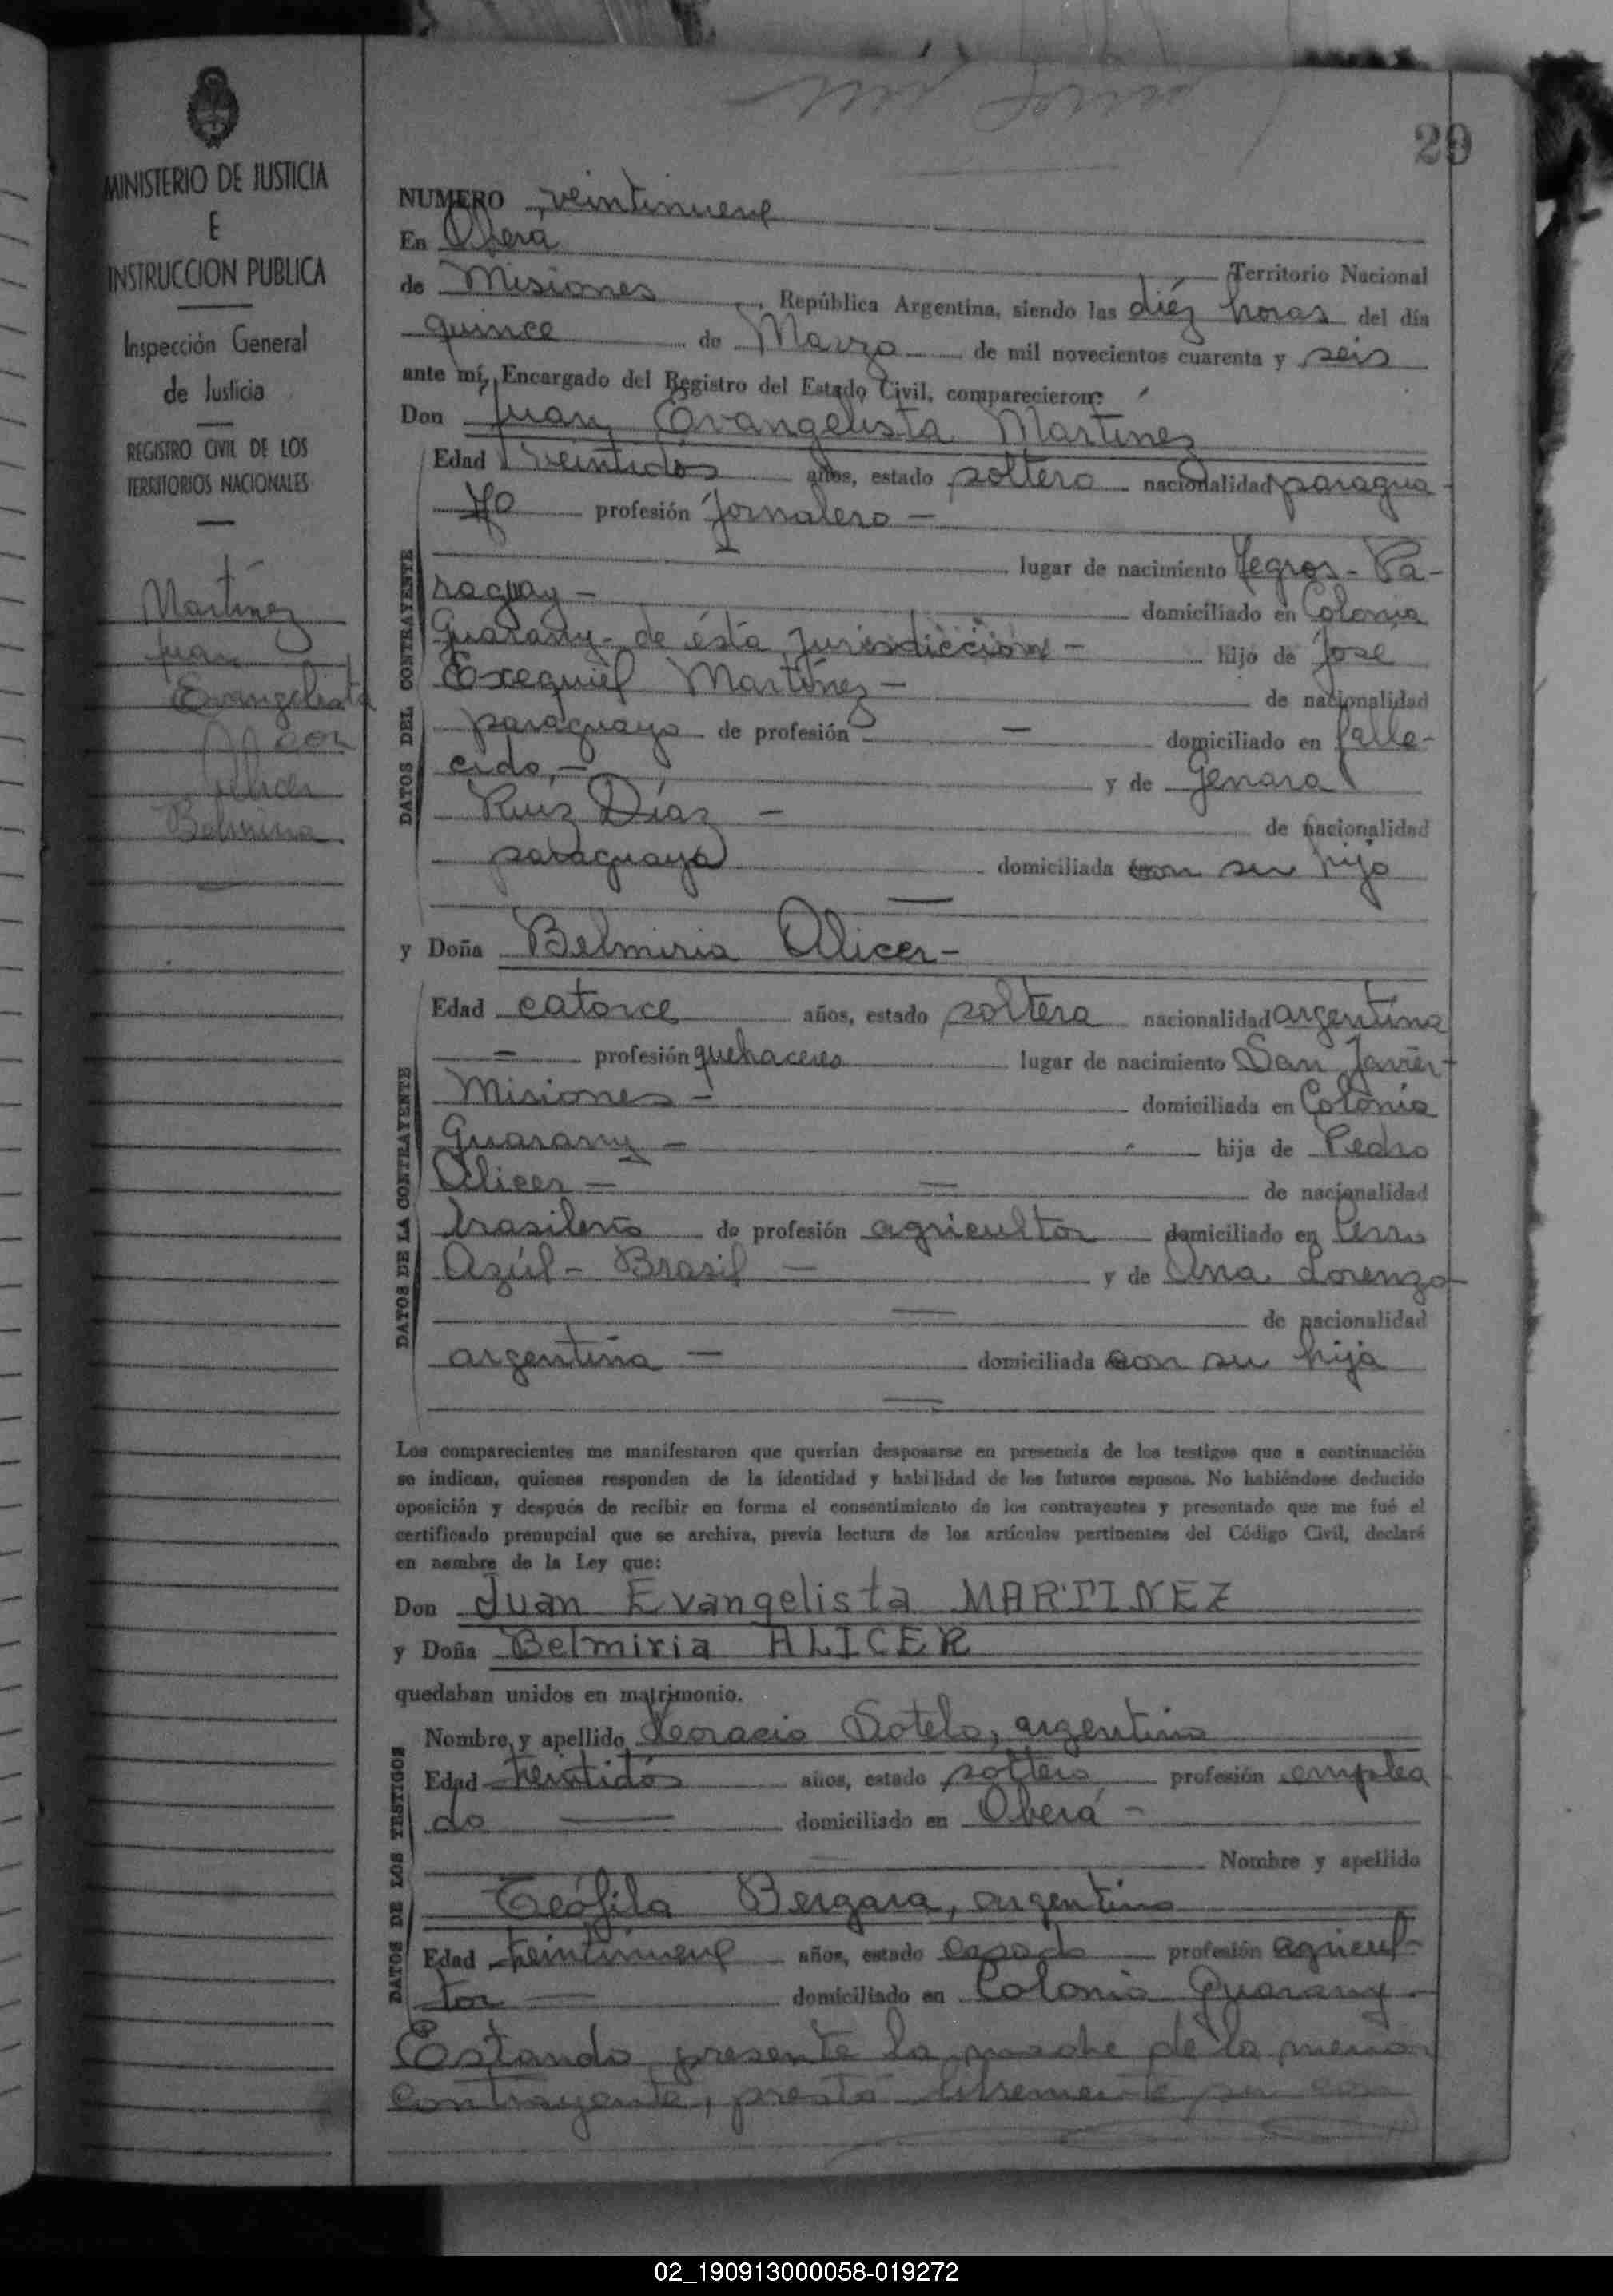 29
MINISTERIO DE JUSTICIA
E
INSTRUCCION PUBLICA
Inspección General
de Justicia
REGISTRO CIVIL DE LOS
TERRITORIOS NACIONALES
Martínez
Juan
Evangelista
con
Alicer
Belmiria
NUMERO veintinueve
En Oberá
Territorio Nacional
de Misiones, República Argentina, siendo las diéz horas del día
quince de Marzo de mil novecientos cuarenta y seis
ante mí, Encargado del Registro del Estado Civil, comparecieron:
Don Juan Evangelista Martínez
DATOS DEL CONTRAYENTE
Edad veintidos años, estado soltero nacionalidad paragua-
yo profesión Jornalero -
lugar de nacimiento Yegros - Pa-
raguay - domiciliado en Colonia
Guarany - de ésta Jurisdicción - hijo de José
Exequiél Martínez - de nacionalidad
paraguayo de profesión - domiciliado en falle-
cido, - y de Genara
Ruíz Díaz - de nacionalidad
paraguaya domiciliada con su hijo
y Doña Belmiria Alicer -
DATOS DE LA CONTRAYENTE
Edad catorce años, estado soltera nacionalidad argentina
- profesión quehaceres lugar de nacimiento San Javier -
Misiones - domiciliada en Colonia
Guarany - hija de Pedro
Alicer - de nacionalidad
brasileño de profesión agricultor domiciliado en Cerro
Azúl - Brasil - y de Ana Lorenzo -
de nacionalidad
argentina - domiciliada con su hija
Los comparecientes me manifestaron que querían desposarse en presencia de los testigos que a continuación
se indican, quienes responden de la identidad y habilidad de los futuros esposos. No habiéndose deducido
oposición y después de recibir en forma el consentimiento de los contrayentes y presentado que me fué el
certificado prenupcial que se archiva, previa lectura de los artículos pertinentes del Código Civil, declaré
en nombre de la Ley que:
Don Juan Evangelista MARTINEZ
y Doña Belmiria ALICER
quedaban unidos en matrimonio.
DATOS DE LOS TESTIGOS
Nombre y apellido Horacio Sotelo, argentino
Edad treintidós años, estado soltero profesión emplea
do domiciliado en Oberá -
Nombre y apellido
Teófilo Bergara, argentino
Edad treintinueve años, estado casado profesión agricul-
tor - domiciliado en Colonia Guarany -
Estando presente la madre de la menor
contrayente, prestó libremente su con
02_190913000058-019272